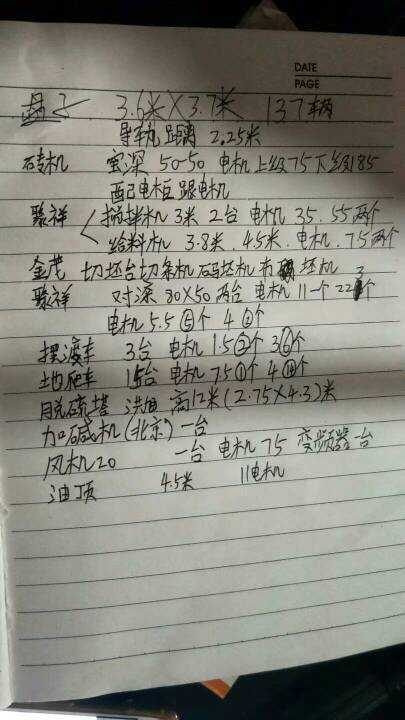 DATE
PAGE
盘子 3.6米×3.7米 137辆
导轨距离 2.25米
砖机 宝深 50-50 电机上级75下级185
配电柜跟电机
聚祥 搅拌机 3米 2台 电机 35.55两个
给料机 3.8米.4.5米.电机.7.5两个
金茂 切坯台切条机码坯机布坯机
聚祥 对滚 80×50 两台 电机 11一个 22个
电机 5.5⑤个 4⑥个
摆渡车 3台 电机 1.5②个 3⑥个
地爬车 15台 电机 7.5①个 4⑭个
脱硫塔 洗 高12米(2.75×4.3)米
加碱机(北京)一台
风机20 一台 电机 75 变频器一台
油顶 4.5米 11电机